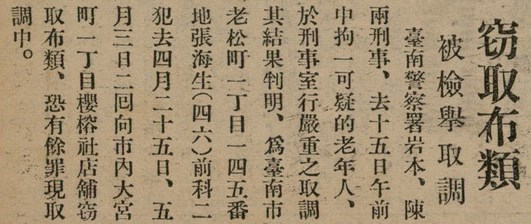 窃取布類
被檢擧取調
臺南警察署岩本、陳
兩刑事、去十五日午前
中拘一可疑的老年人、
於刑事室行嚴重之取調
其結果判明、爲臺南市
老松町一丁目一四五番
地張海生(四六)前科二
犯去四月二十五日、五
月三日二回向市內大宮
町一丁目櫻榕社店舖窃
取布類、恐有餘罪現取
調中。